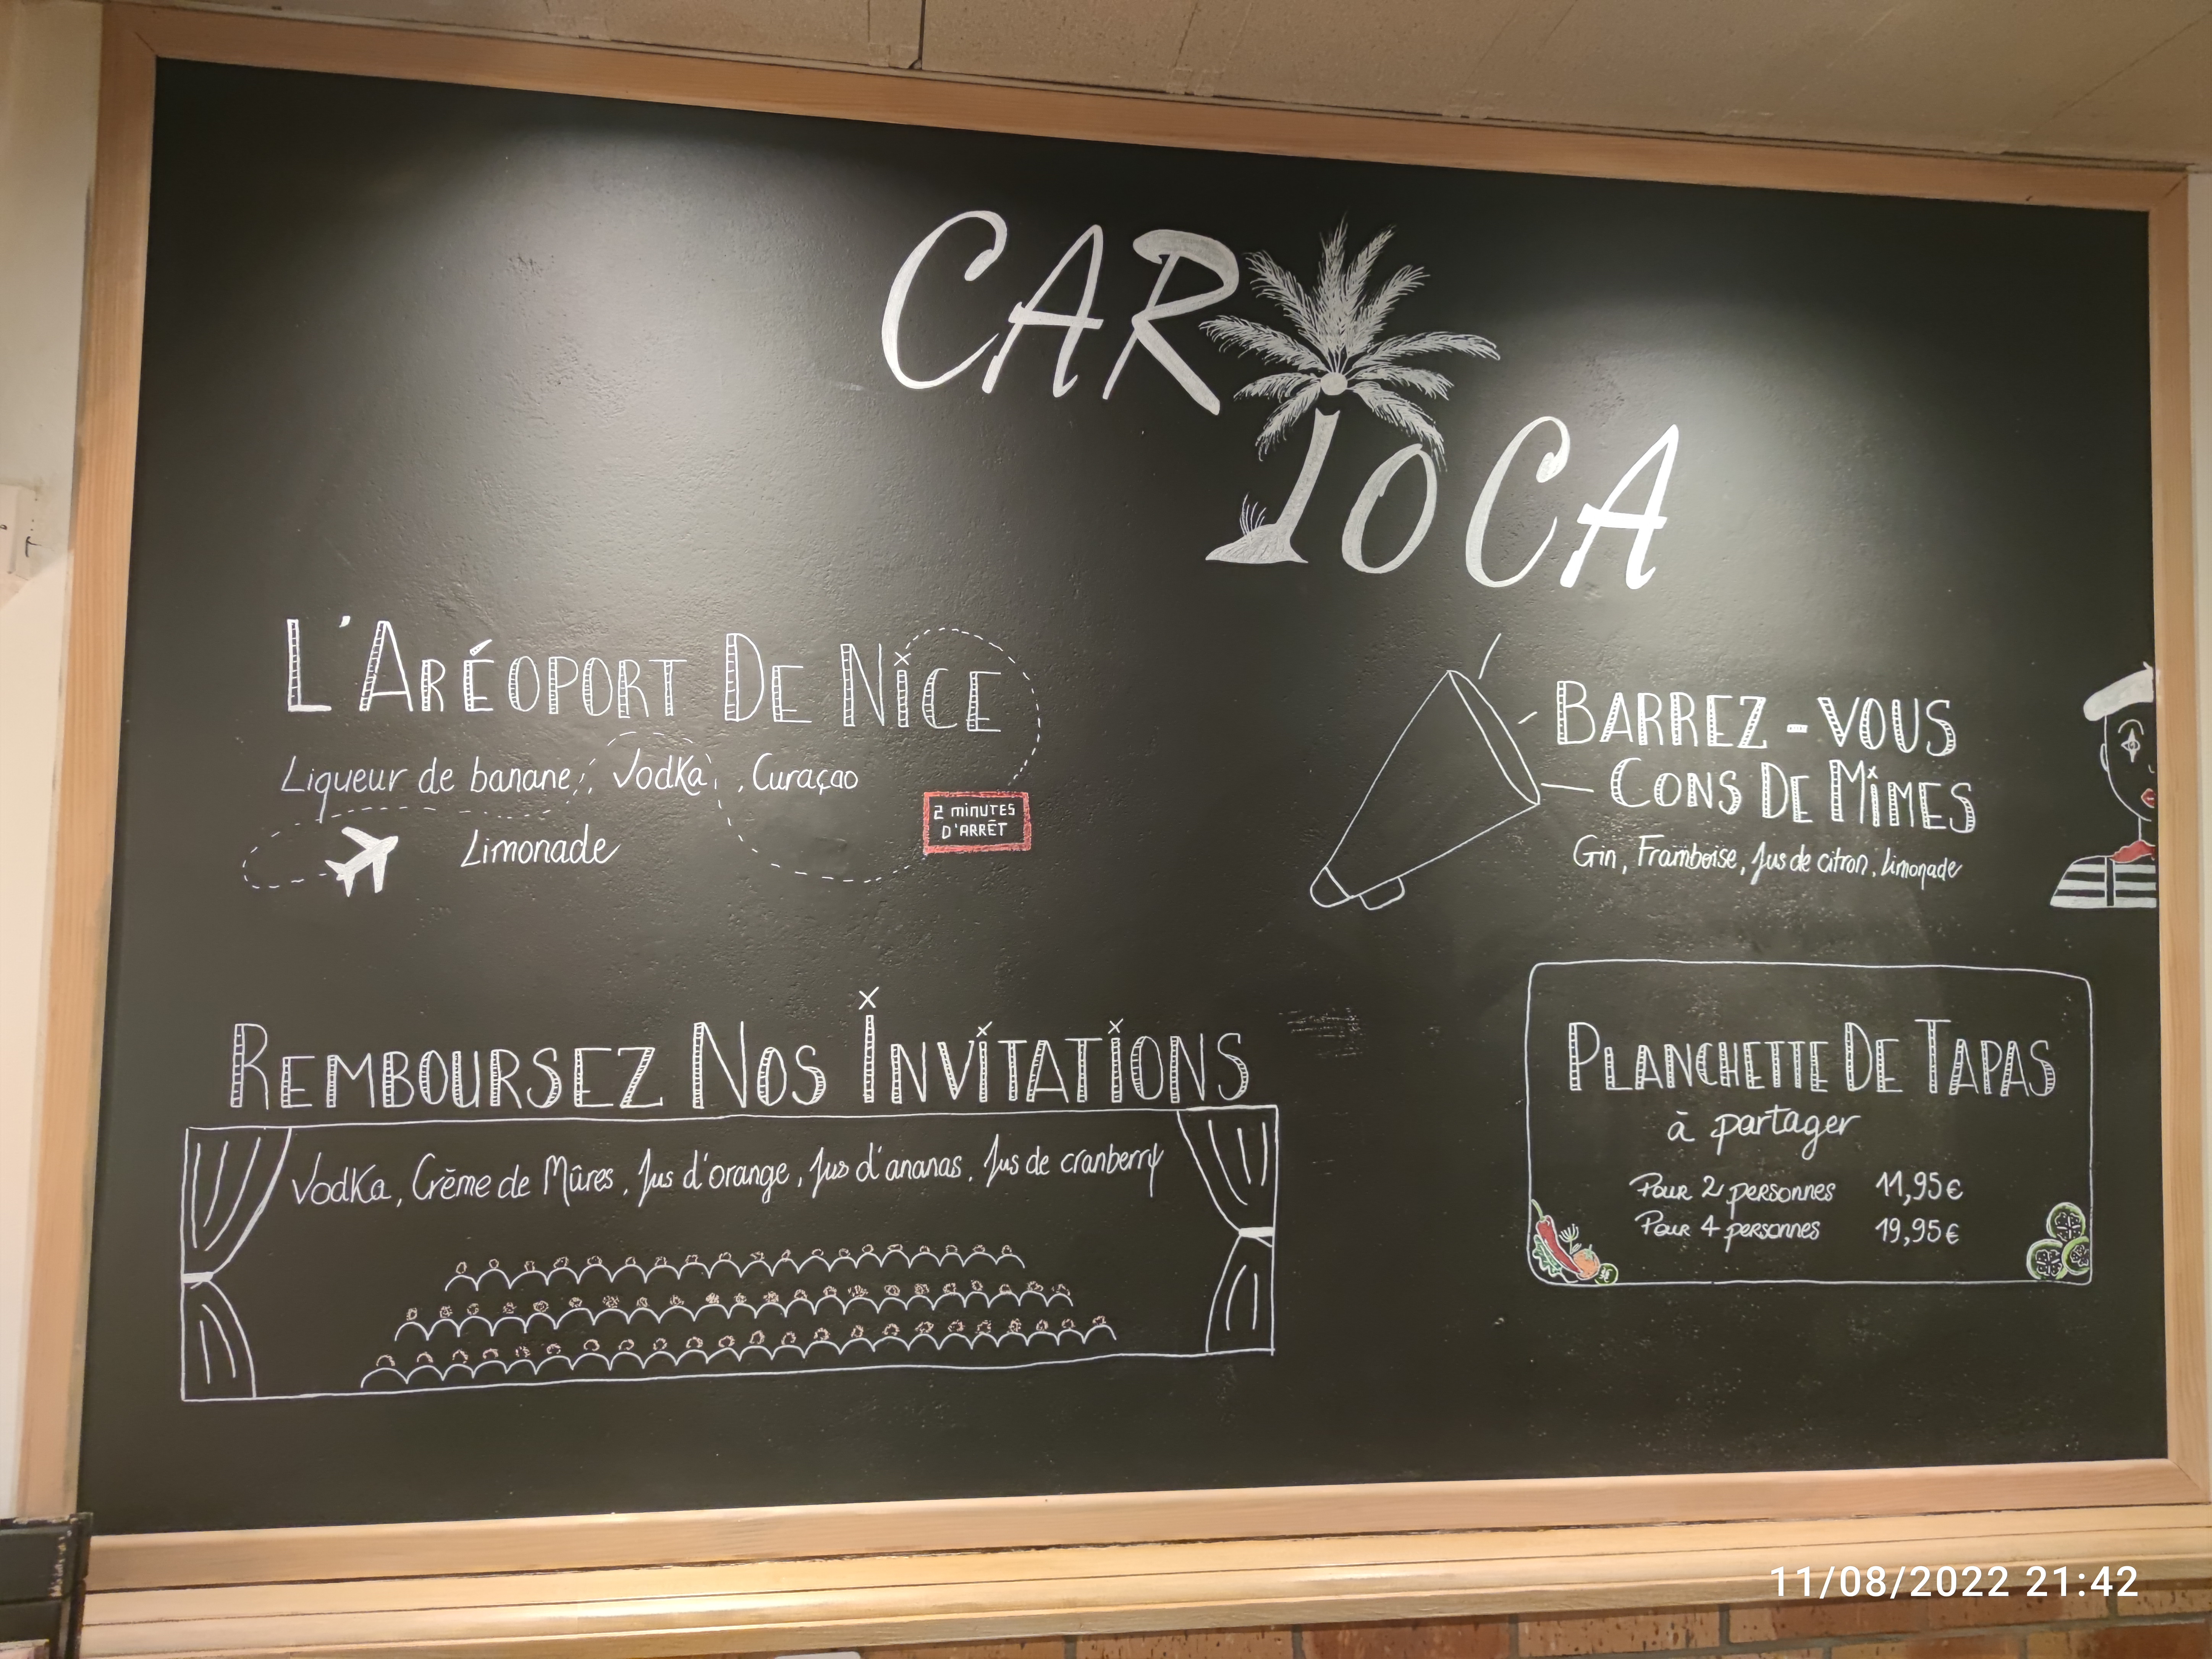 CARIOCA
L'ARÉOPORT DE NiCE
Liqueur de banane, Vodka, Curaçao
Limonade
2 minutes
D'ARRÊT
BARREZ-VOUS
CONS DE MiMES
Gin, Framboise, Jus de citron, Limonade
REMBOURSEZ NOS INViTATiONS
Vodka, Crème de Mûres, Jus d'orange, Jus d'ananas, Jus de cranberry
PLANCHETTE DE TAPAS
à partager
Pour 2 personnes 11,95€
Pour 4 personnes 19,95€
11/08/2022 21:42